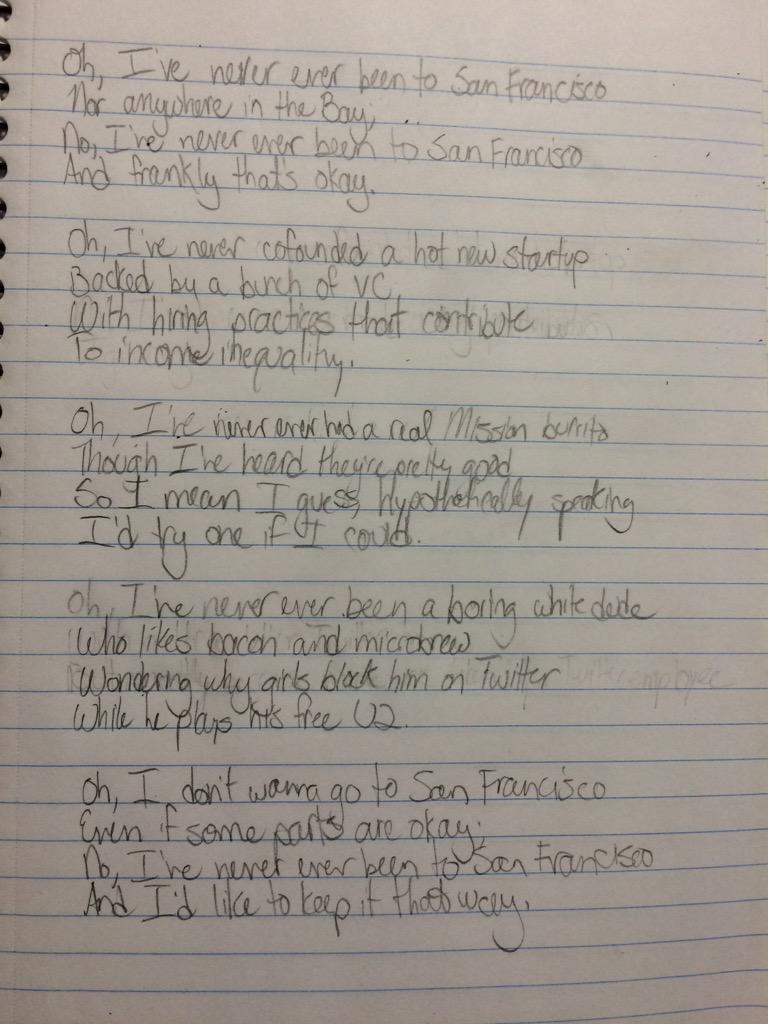 Oh, I've never ever been to San Francisco
Nor anywhere in the Bay;
No, I've never ever been to San Francisco
And frankly that's okay.
Oh, I've never cofounded a hot new startup
Backed by a bunch of VC
With hiring practices that contribute
To income inequality.
Oh, I've never ever had a real Mission burrito
Though I've heard they're pretty good
So I mean I guess, hypothetically speaking
I'd try one if I could.
Oh, I've never ever been a boring white dude
Who likes bacon and microbrew
Wondering why girls block him on Twitter
While he plays his free U2.
Oh, I don't wanna go to San Francisco
Even if some parts are okay;
No, I've never ever been to San Francisco
And I'd like to keep it that way.